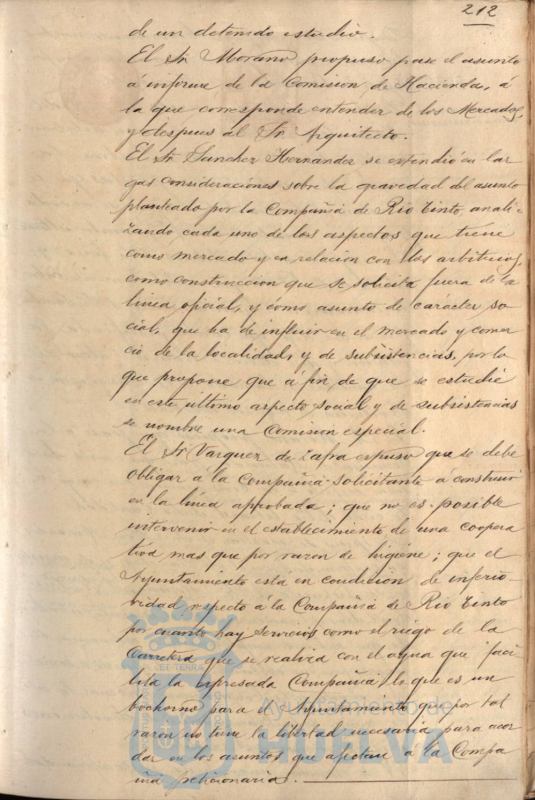 212
de un detenido estudio.
El Sr Morano propuso pase el asunto
á informe de la Comision de Hacienda, á
la que corresponde entender de los Mercados,
y despues al Sr Arquitecto.
El Sr Sanchez Hernandez se extendió en lar
gas consideraciones sobre la gravedad del asunto
planteado por la Compañia de Rio Tinto anali
zando cada uno de los aspectos que tiene
como mercado y en relacion con los arbitrios,
como construccion que se solicita fuera de la
linea oficial, y cómo asunto de carácter so
cial, que ha de influir en el mercado y comer
cio de la localidad, y de subsistencias, por lo
que propone que á fin de que se estudie
en este ultimo aspecto social y de subsistencias
se nombre una Comision especial.
El Sr Vazquez de Zafra expuso que se debe
obligar á la Compañia solicitante á construir
en la linea aprobada; que no es posible
intervenir en el establecimiento de una coopera
tiva mas que por razon de higiene; que el
Ayuntamiento está en condicion de inferio-
ridad respecto á la Compañia de Rio Tinto
por cuanto hay servicios como el riego de la
Carretera que se realiza con el agua que faci
lita la expresada Compañia lo que es un
bochorno para el Ayuntamiento que por tal
razon no tiene la libertad necesaria para acor
dar en los asuntos que afectan á la Compa
ñia peticionaria.